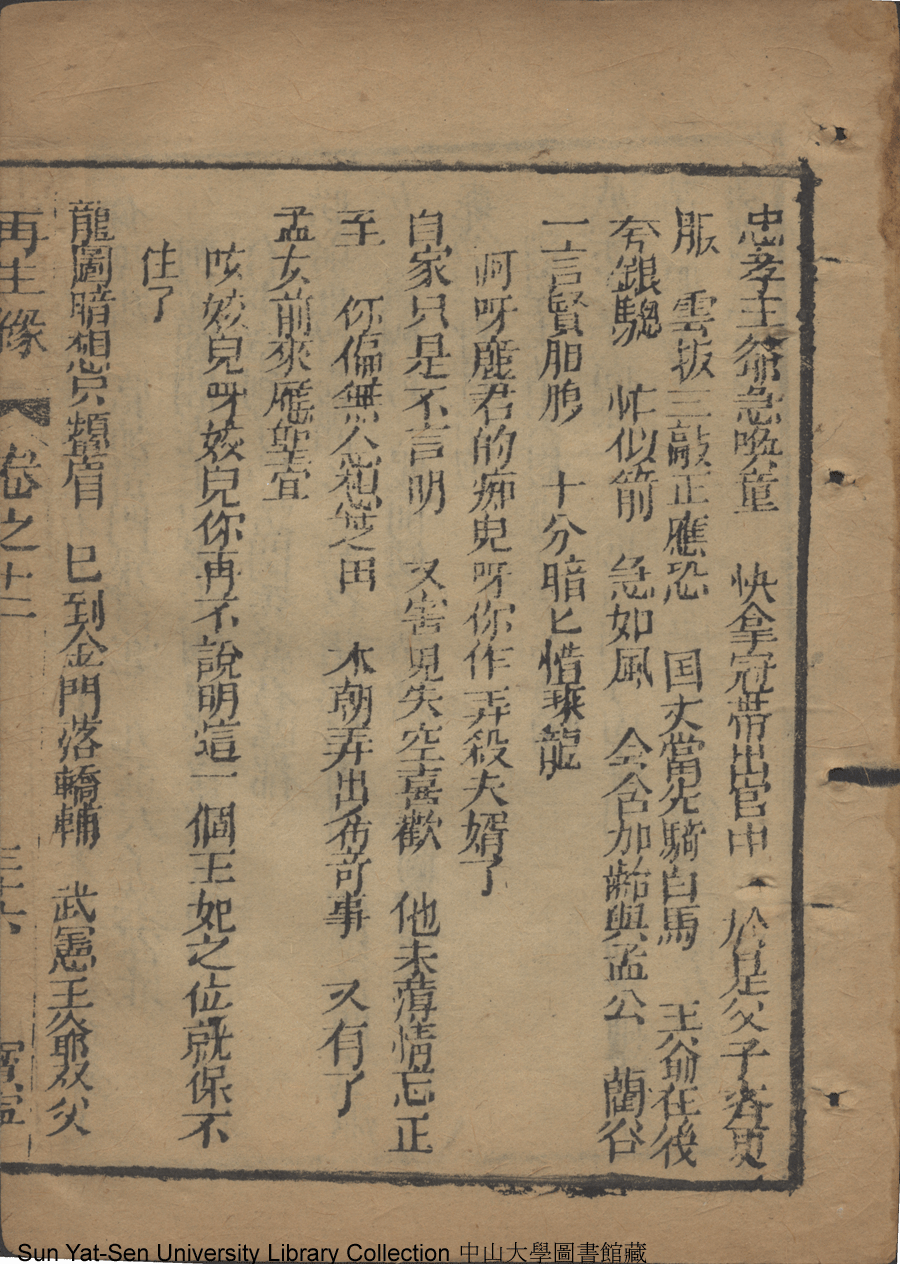 忠孝王爺急喚童　快拿冠帶出宫中　於是父子各更
服　雲板三敲正應恐　国丈當先騎白馬　王爺在後
夸銀騘　忙似箭　急如風　会合加齡與孟公　蘭谷
一言賢胆胯　十分暗匕惜乘龍
呵呀鹿君的痴児呀你作弄殺夫婿了
自家只是不言明　又害児夫空喜歡　他未薄情忘正
至　你偏無人想芝田　本朝弄出希竒事　又有了
孟女前來應聖宣
咳姣皃呀姣皃你再不說明這一個王妃之位就保不
住了
龍圖暗想只顰眉　巳到金門落轎輔　武憲王爺双父
再生緣　卷之十二　三十六　寳寧
Sun Yat-Sen University Library Collection 中山大學圖書館藏